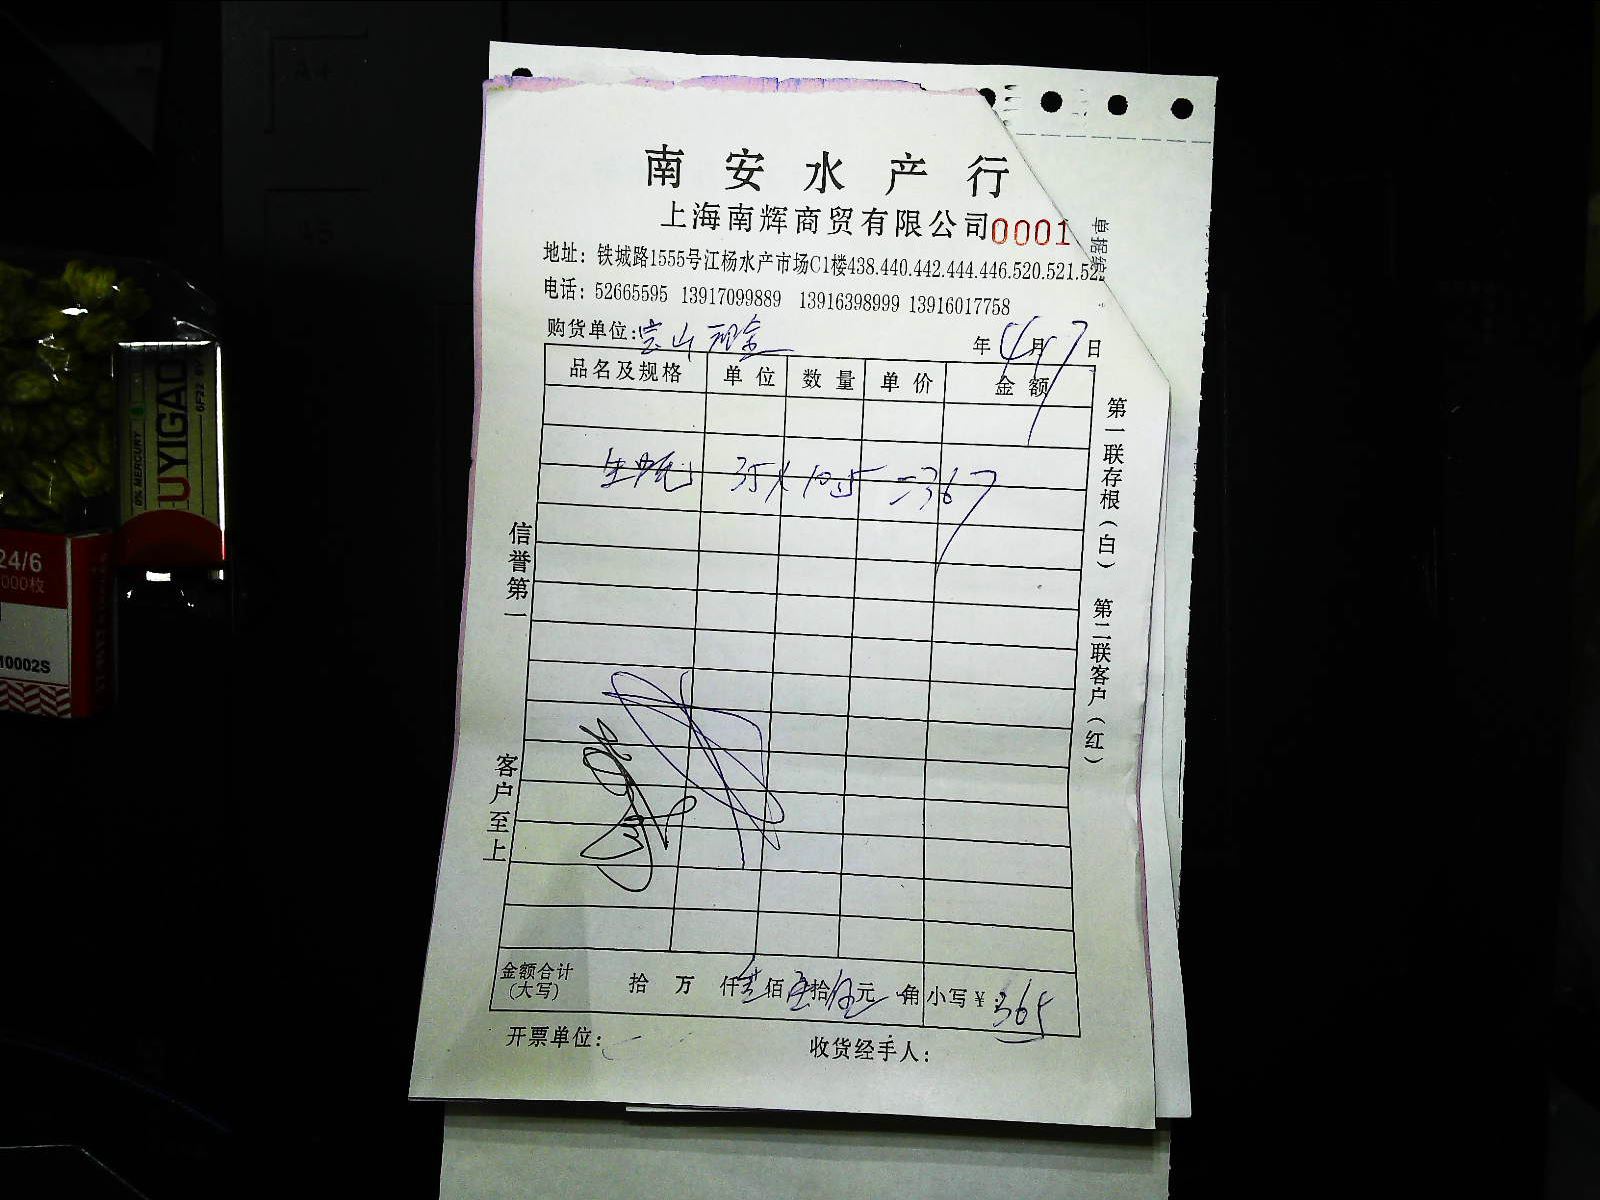 南安水产行
上海南辉商贸有限公司 0001
单据
地址：铁城路1555号江杨水产市场C1楼438.440.442.444.446.520.521.52
电话：52665595 13917099889 13916398999 13916017758
购货单位：宝山 现金 年 4月7日
品名及规格 单位 数量 单价 金额
生蚝 35 x 10.5 = 367
金额合计（大写） 拾 万 仟 叁佰 陆拾 伍元 角 小写￥：365
开票单位：
收货经手人：
信誉第一
客户至上
第一联存根（白） 第二联客户（红）
UYIGAO
0% MERCURY
6F22 9V
24/6
000枚
10002S